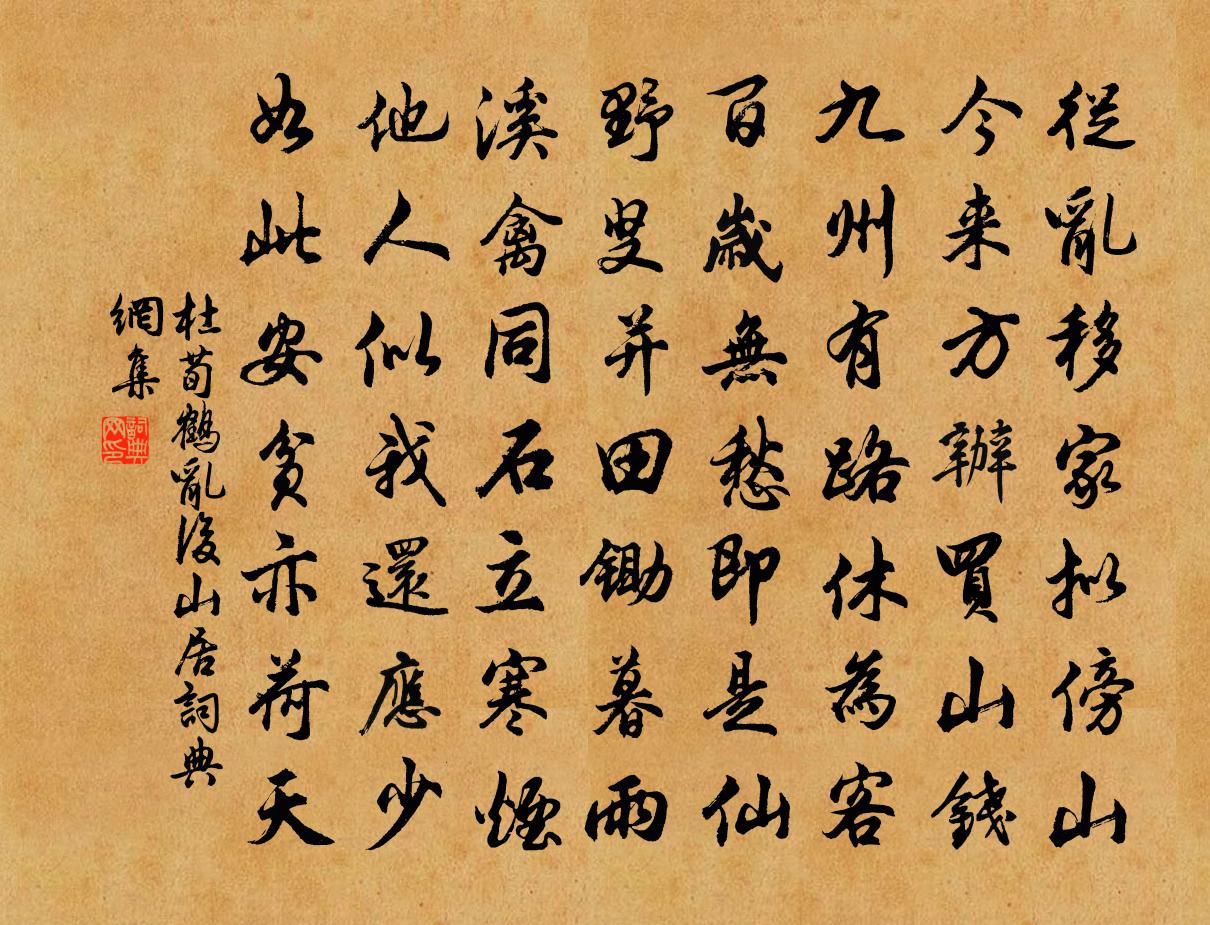 從亂移家拟傍山
今来方辦買山錢
九州有路休為客
百歲無愁即是仙
野叟并田鋤暮雨
溪禽同石立寒煙
他人似我還應少
如此安貧亦荷天
杜荀鶴亂後山居詞典
網集
詞典
网印